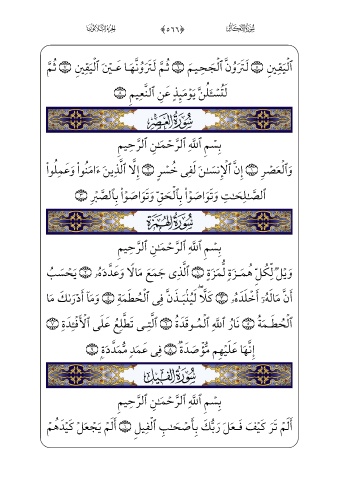 سُورَةُ التَّكَاثُرِ ﴿٥٦٦﴾ الجزء الثلاثون
ٱلۡيَقِينِ ۝ لَتَرَوُنَّ ٱلۡجَحِيمَ ۝ ثُمَّ لَتَرَوُنَّهَا عَيۡنَ ٱلۡيَقِينِ ۝ ثُمَّ
لَتُسۡـَٔلُنَّ يَوۡمَئِذٍ عَنِ ٱلنَّعِيمِ ۝
سُورَةُ العَصۡرِ
بِسۡمِ ٱللَّهِ ٱلرَّحۡمَٰنِ ٱلرَّحِيمِ
وَٱلۡعَصۡرِ ۝ إِنَّ ٱلۡإِنسَٰنَ لَفِي خُسۡرٍ ۝ إِلَّا ٱلَّذِينَ ءَامَنُواْ وَعَمِلُواْ
ٱلصَّٰلِحَٰتِ وَتَوَاصَوۡاْ بِٱلۡحَقِّ وَتَوَاصَوۡاْ بِٱلصَّبۡرِ ۝
سُورَةُ الهُمَزَةِ
بِسۡمِ ٱللَّهِ ٱلرَّحۡمَٰنِ ٱلرَّحِيمِ
وَيۡلٞ لِّكُلِّ هُمَزَةٖ لُّمَزَةٍ ۝ ٱلَّذِي جَمَعَ مَالٗا وَعَدَّدَهُۥ ۝ يَحۡسَبُ
أَنَّ مَالَهُۥٓ أَخۡلَدَهُۥ ۝ كَلَّاۖ لَيُنۢبَذَنَّ فِي ٱلۡحُطَمَةِ ۝ وَمَآ أَدۡرَىٰكَ مَا
ٱلۡحُطَمَةُ ۝ نَارُ ٱللَّهِ ٱلۡمُوقَدَةُ ۝ ٱلَّتِي تَطَّلِعُ عَلَى ٱلۡأَفۡـِٔدَةِ ۝
إِنَّهَا عَلَيۡهِم مُّؤۡصَدَةٞ ۝ فِي عَمَدٖ مُّمَدَّدَةِۭ ۝
سُورَةُ الفِيلِ
بِسۡمِ ٱللَّهِ ٱلرَّحۡمَٰنِ ٱلرَّحِيمِ
أَلَمۡ تَرَ كَيۡفَ فَعَلَ رَبُّكَ بِأَصۡحَٰبِ ٱلۡفِيلِ ۝ أَلَمۡ يَجۡعَلۡ كَيۡدَهُمۡ